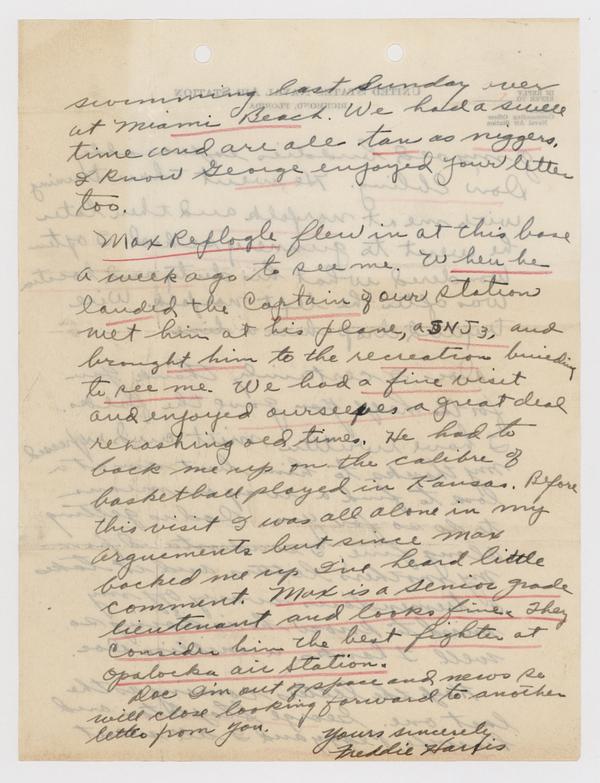 swimming last Sunday over
at Miami Beach. We had a swell
time and are all tan as niggers.
I know George enjoyed your letter
too.
Max Replogle flew in at this base
a week ago to see me. When he
landed the Captain of our station
met him at his plane, a SNJ3, and
brought him to the recreation building
to see me. We had a fine visit
and enjoyed ourselves a great deal
rehashing old times. He had to
back me up on the calibre of
basketball played in Kansas. Before
this visit I was all alone in my
arguements but since Max
backed me up I've heard little
comment. Max is a senior grade
lieutenant and looks fine. They
consider him the best fighter at
Opalocka air station.
Doc I'm out of space and news so
will close looking forward to another
letter from you.
Yours sincerely
Freddie Harris